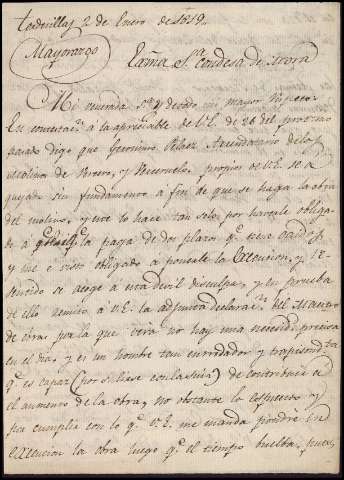 Tordesillas 2 de Enero de 1819,
Mayorazgo
Exma S.ª Condesa de Mora
Mi venerada S.ª y de todo mi mayor respeto:
En contestac.n á la apreciable de V.E. de 26 del proximo
pasado digo que Geronimo Pelaez Arrendatario de los
molinos de y propios de V.E. se a
quejado sin fundamento á fin de que se haga la obra
del molino, y eso lo hace tan solo por haverle obliga-
do á q.e la paga de dos plazos q.e tiene caidos
y me e visto obligado á ponerle la Execucion, y te-
miendo se acoge á esta devil disculpa, y en prueba
de ello remito á V.E. la adjunta declarac.n del Maestro
de obras por la que verá no hay una necesid.d precisa
en el dia, y es un hombre tan enredador y trapisondista
q.e es capaz (por si llebe con la suia) de contribuir á
el aumento de la obra, no obstante lo espuesto y
p.a cumplir con lo q.e V.E. me manda pondré en
execucion la obra luego q.e el tiempo buelba, pues